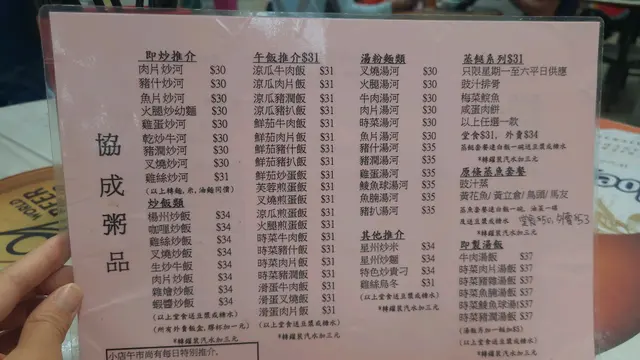 協成粥品
即炒推介
肉片炒河 $30
豬什炒河 $30
魚片炒河 $30
火腿炒幼麵 $30
雞蛋炒河 $30
乾炒牛河 $30
豬潤炒河 $30
叉燒炒河 $30
雞絲炒河 $31
(以上轉麵,米,油麵同價)
炒飯類
楊州炒飯 $34
咖喱炒飯 $34
雞絲炒飯 $34
叉燒炒飯 $34
生炒牛飯 $34
肉片炒飯 $34
雞燴炒飯 $34
蝦醬炒飯 $34
(以上堂食送豆漿或糖水)
(所有外賣飯盒,膠杯加一元)
*轉罐裝汽水加三元
小店午市尚有每日特別推介.
午飯推介$31
涼瓜牛肉飯 $31
涼瓜肉片飯 $31
涼瓜豬潤飯 $31
鮮茄牛肉飯 $31
鮮茄肉片飯 $31
鮮茄豬扒飯 $31
鮮茄炒蛋飯 $31
芙蓉煎蛋飯 $31
叉燒煎蛋飯 $31
涼瓜煎蛋飯 $31
火腿煎蛋飯 $31
時菜牛肉飯 $31
時菜豬什飯 $31
時菜肉片飯 $31
時菜豬潤飯 $31
滑蛋牛肉飯 $31
滑蛋叉燒飯 $31
滑蛋肉片飯 $31
(以上堂食送豆漿或糖水)
*轉罐裝汽水加三元
湯粉麵類
叉燒湯河 $30
火腿湯河 $30
牛肉湯河 $30
肉片湯河 $30
時菜湯河 $30
魚片湯河 $30
豬什湯河 $35
豬潤湯河 $35
雞蛋湯河 $35
鯪魚球湯河 $35
魚腩湯河 $35
豬扒湯河 $35
其他推介
星州炒米 $34
星州炒麵 $34
特色炒貴刁 $34
雞絲烏冬 $31
(以上堂食送豆漿或糖水)
*轉罐裝汽水加三元
蒸餸系列$31
只限星期一至六平日供應
豉汁排骨
梅菜鯇魚
咸蛋肉餅
以上任選一款
堂食$31, 外賣$34
蒸餸套餐送白飯一碗送豆漿或糖水
*轉罐裝汽水加三元
原條蒸魚套餐
豉汁蒸
黃花魚/ 黃立倉/ 烏頭/ 馬友
蒸魚套餐送白飯一碗, 油菜一碟
及送豆漿或糖水 堂食$50, 外賣$53
*轉罐裝汽水加三元
即製湯飯
牛肉湯飯 $37
時菜肉片湯飯 $37
時菜豬潤湯飯 $37
時菜豬雜湯飯 $37
時菜魚腩湯飯 $37
時菜鯪魚球湯飯 $37
時菜雞球湯飯 $37
(湯飯另加一餸加$5)
(以上堂食送豆漿或糖水)
*轉罐裝汽水加三元
WORLD